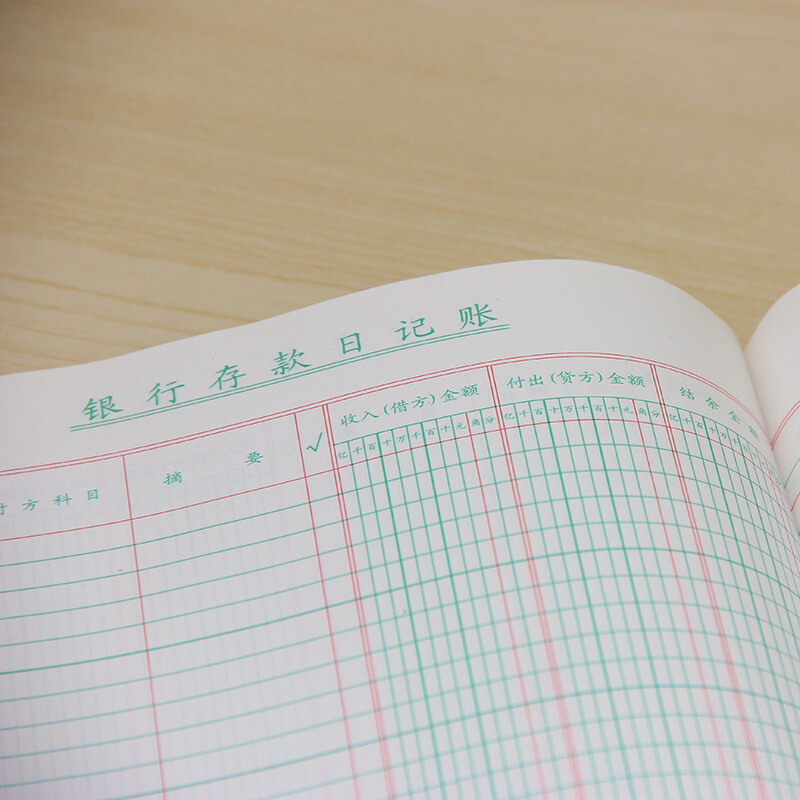 银行存款日记账
方科目 摘要 √ 收入(借方)金额 付出(贷方)金额 结余金额
亿千百十万千百十元角分 亿千百十万千百十元角分 亿千百十万千